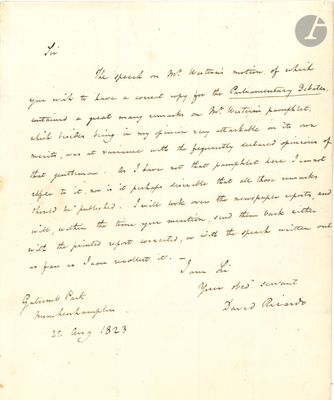 Sir
The speech on Mr. Western's motion of which
you wish to have a correct copy for the Parliamentary Debates,
contained a great many remarks on Mr. Western's pamphlet,
which besides being in my opinion very attackable on its own
merits, was at variance with the frequently declared opinions of
that gentleman. As I have not that pamphlet here I cannot
refer to it, nor is it perhaps desirable that all those remarks
should be published. I will look over the newspaper reports, and
will, within the time you mention, send them back either
with the printed report corrected, or with the speech written out
as far as I can recollect it. –
I am Sir
Your obedt. servant
David Ricardo
Gatcomb Park
Minchinhampton
22 Aug 1823